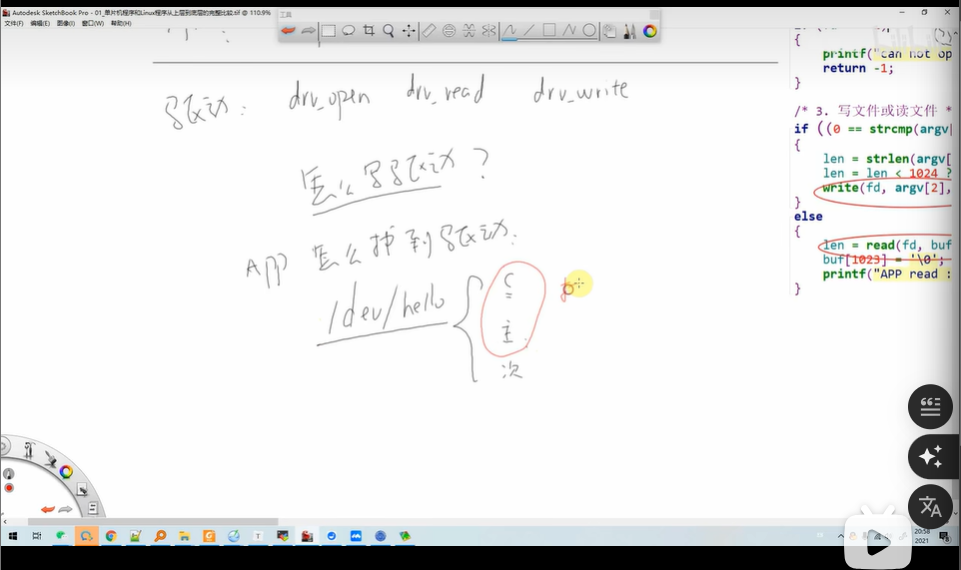 Autodesk SketchBook Pro - 01_单片机程序和Linux程序从上层到底层的完整比较.tif @ 110.9%
文件(F) 编辑(E) 图像(I) 窗口(W) 帮助(H)
工具
驱动: drv_open drv_read drv_write
怎么写驱动?
App 怎么找到驱动.
/dev/hello
c
主
次
{
printf("can not op
return -1;
}
/* 3. 写文件或读文件 *
if ((0 == strcmp(argv
{
len = strlen(argv[
len = len < 1024 ?
write(fd, argv[2],
}
else
{
len = read(fd, buf
buf[1023] = '\0';
printf("APP read :
}
20:58
2021